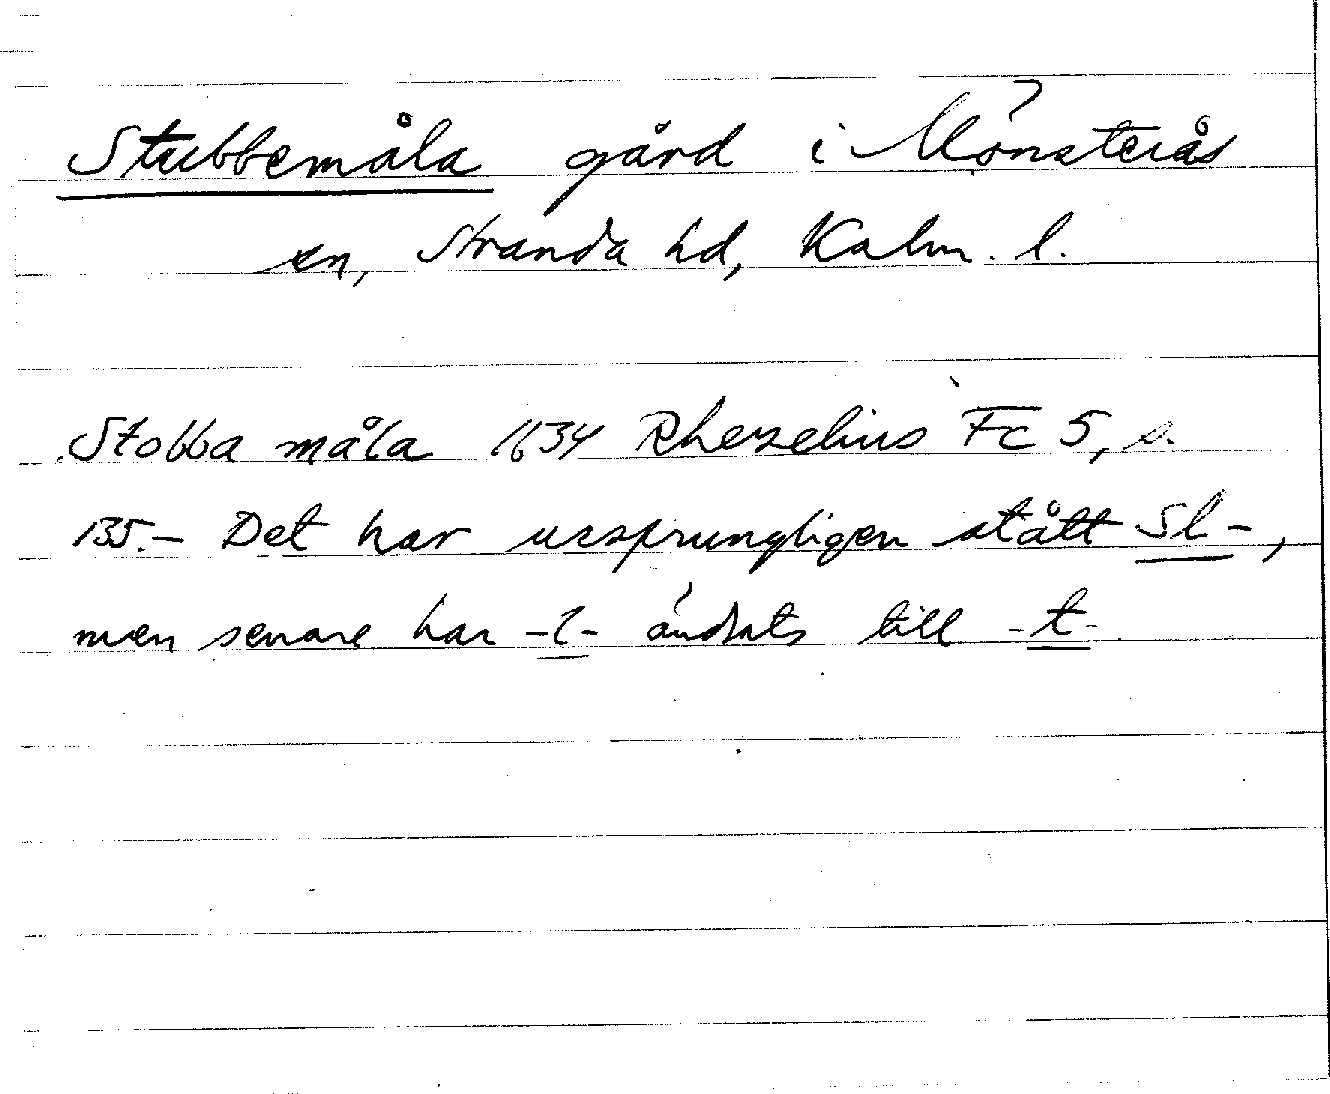 Stubbemåla gård i Mönsterås
sn, Stranda hd, Kalm. l.
Stobba måla 1634 Rhezelius Fc 5, s.
135.- Det har ursprungligen stått Sl-,
men senare har -l- ändrats till -t-